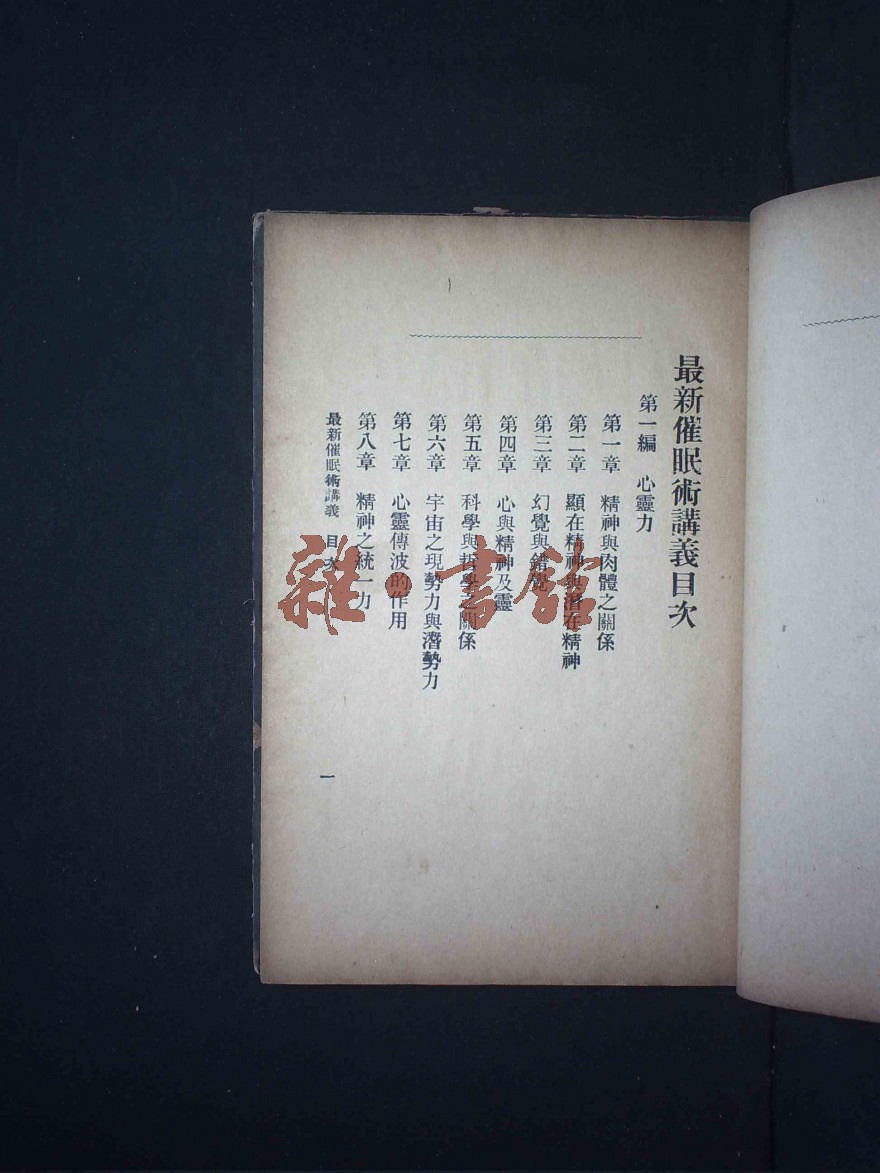 最新催眠術講義目次
第一編　心靈力
第一章　精神與肉體之關係
第二章　顯在精神與潛在精神
第三章　幻覺與錯覺
第四章　心與精神及靈
第五章　科學與哲學之關係
第六章　宇宙之現勢力與潛勢力
第七章　心靈傳波的作用
第八章　精神之統一力
最新催眠術講義　目次
一
雜·書館